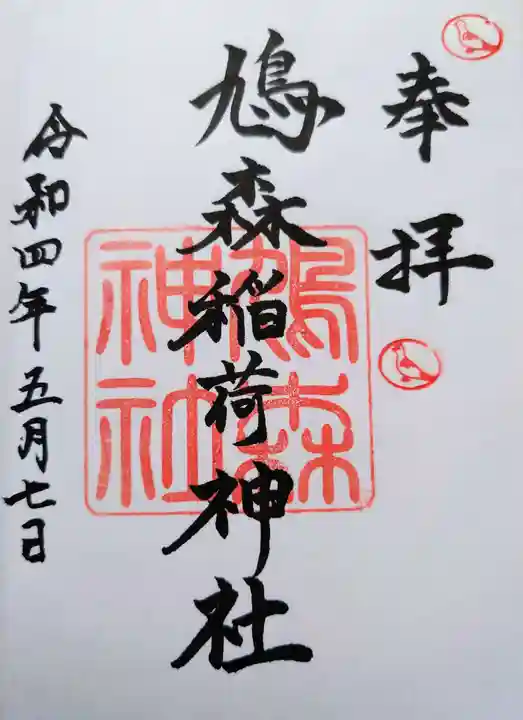 奉拝
鳩森稲荷神社
鳩森
神社
令和四年五月七日